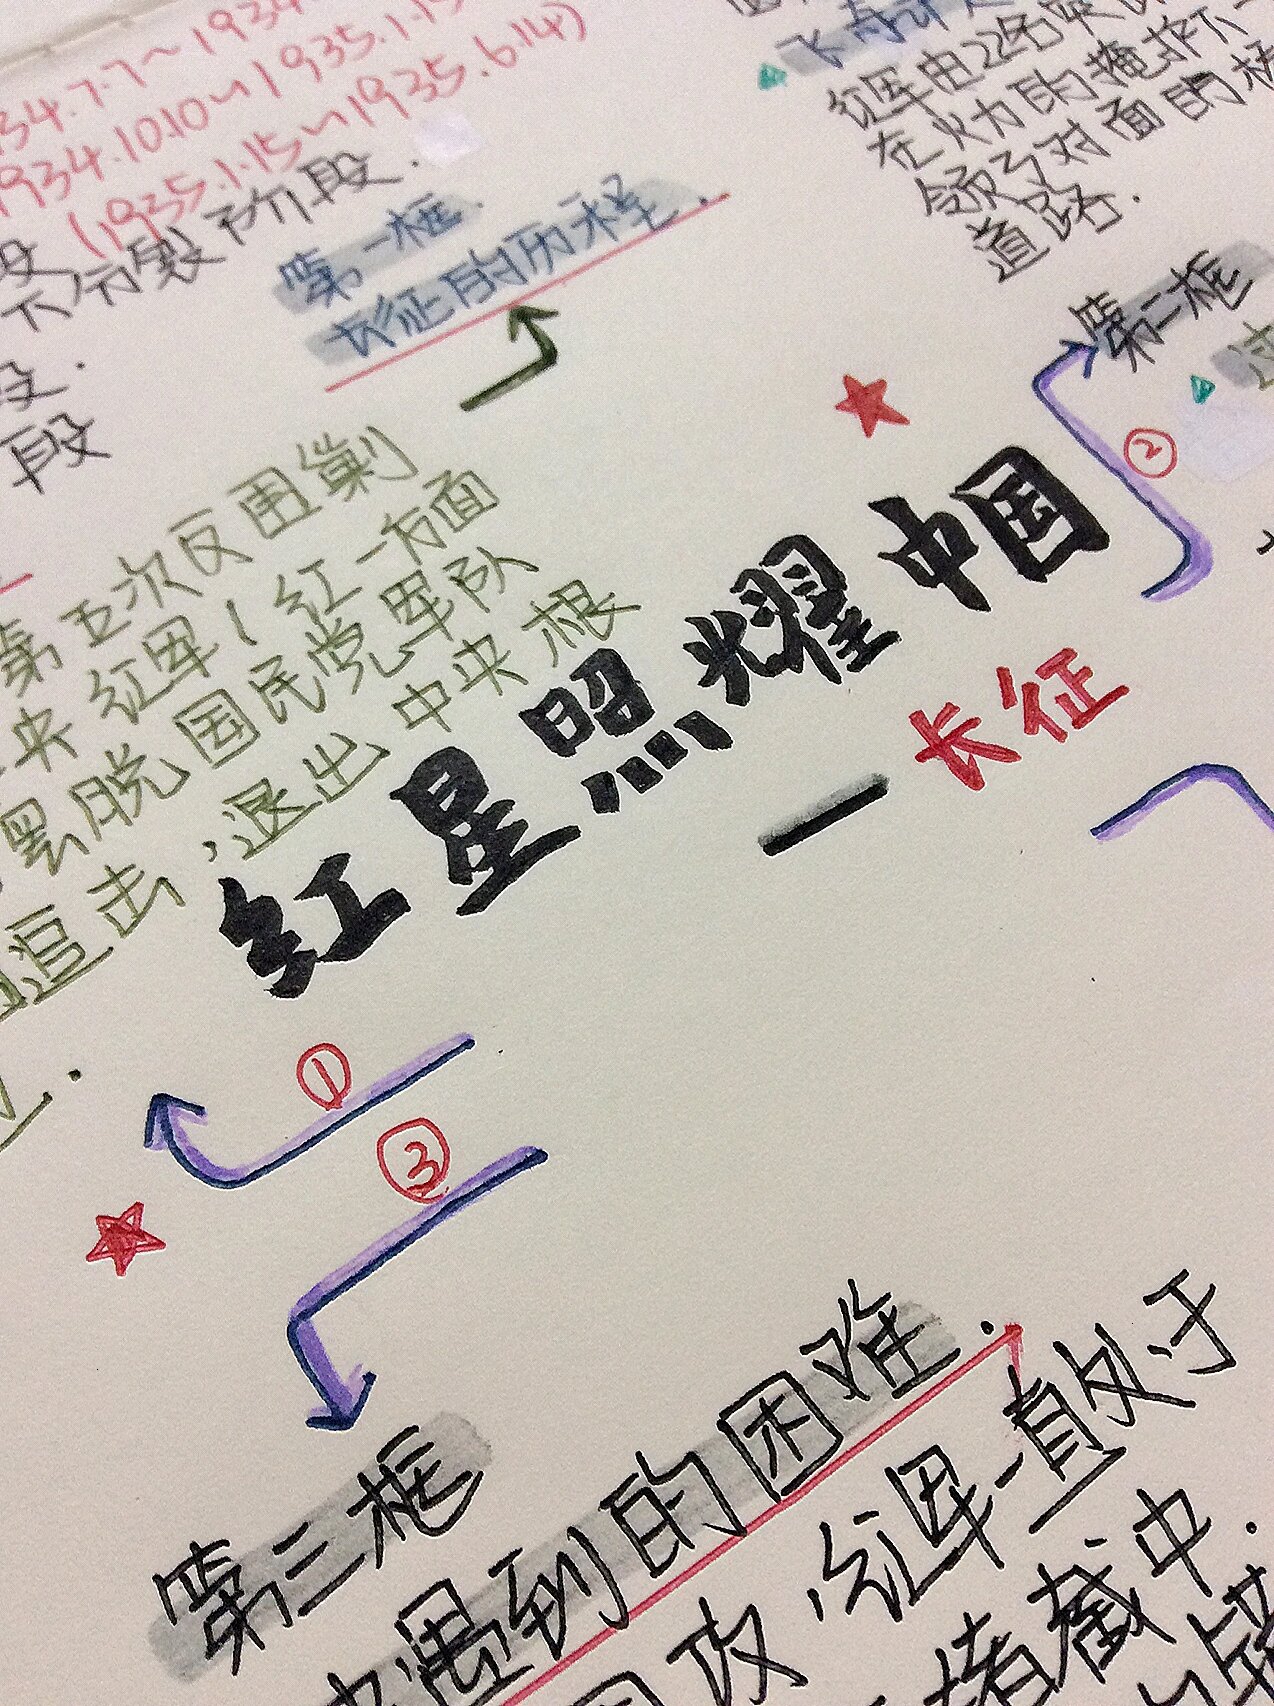 34.7.7~1934
1934.10.10~1935.1.15
(1935.1.15~1935.6.14)
段
不分裂阶段.
段.
段
第一框.
长征的历程.
飞夺
红军由22名
在火力的掩护下
领了对面的桥
道路.
第二框
②
第五次反围剿
央红军(红一方面
罢脱国民党军队
追击,退出中央根
红星照耀中国
—长征
①
③
第三框
遇到的困难.
攻,红军一直处于
堵截中.